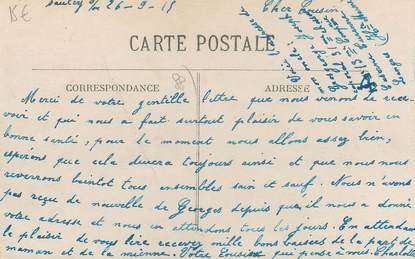 15€
26-9-15
Cher Cousin
CARTE POSTALE
CORRESPONDANCE
ADRESSE
Merci de votre gentille lettre que nous venons de rece
voir et qui nous a fait surtout plaisir de vous savoir en
bonne santé, pour le moment nous allons assez bien,
espérons que cela durera toujours ainsi et que nous nous
reverrons bientot tous ensembles sain et sauf. Nous n'avons
pas reçue de nouvelle de Georges depuis qu'il nous a donné
votre adresse et nous en attendons tous les jours. En attendant
le plaisir de vous lire recevez mille bons baisers de la part de
maman et de la mienne. Votre Cousin qui pense à vous. Charlot